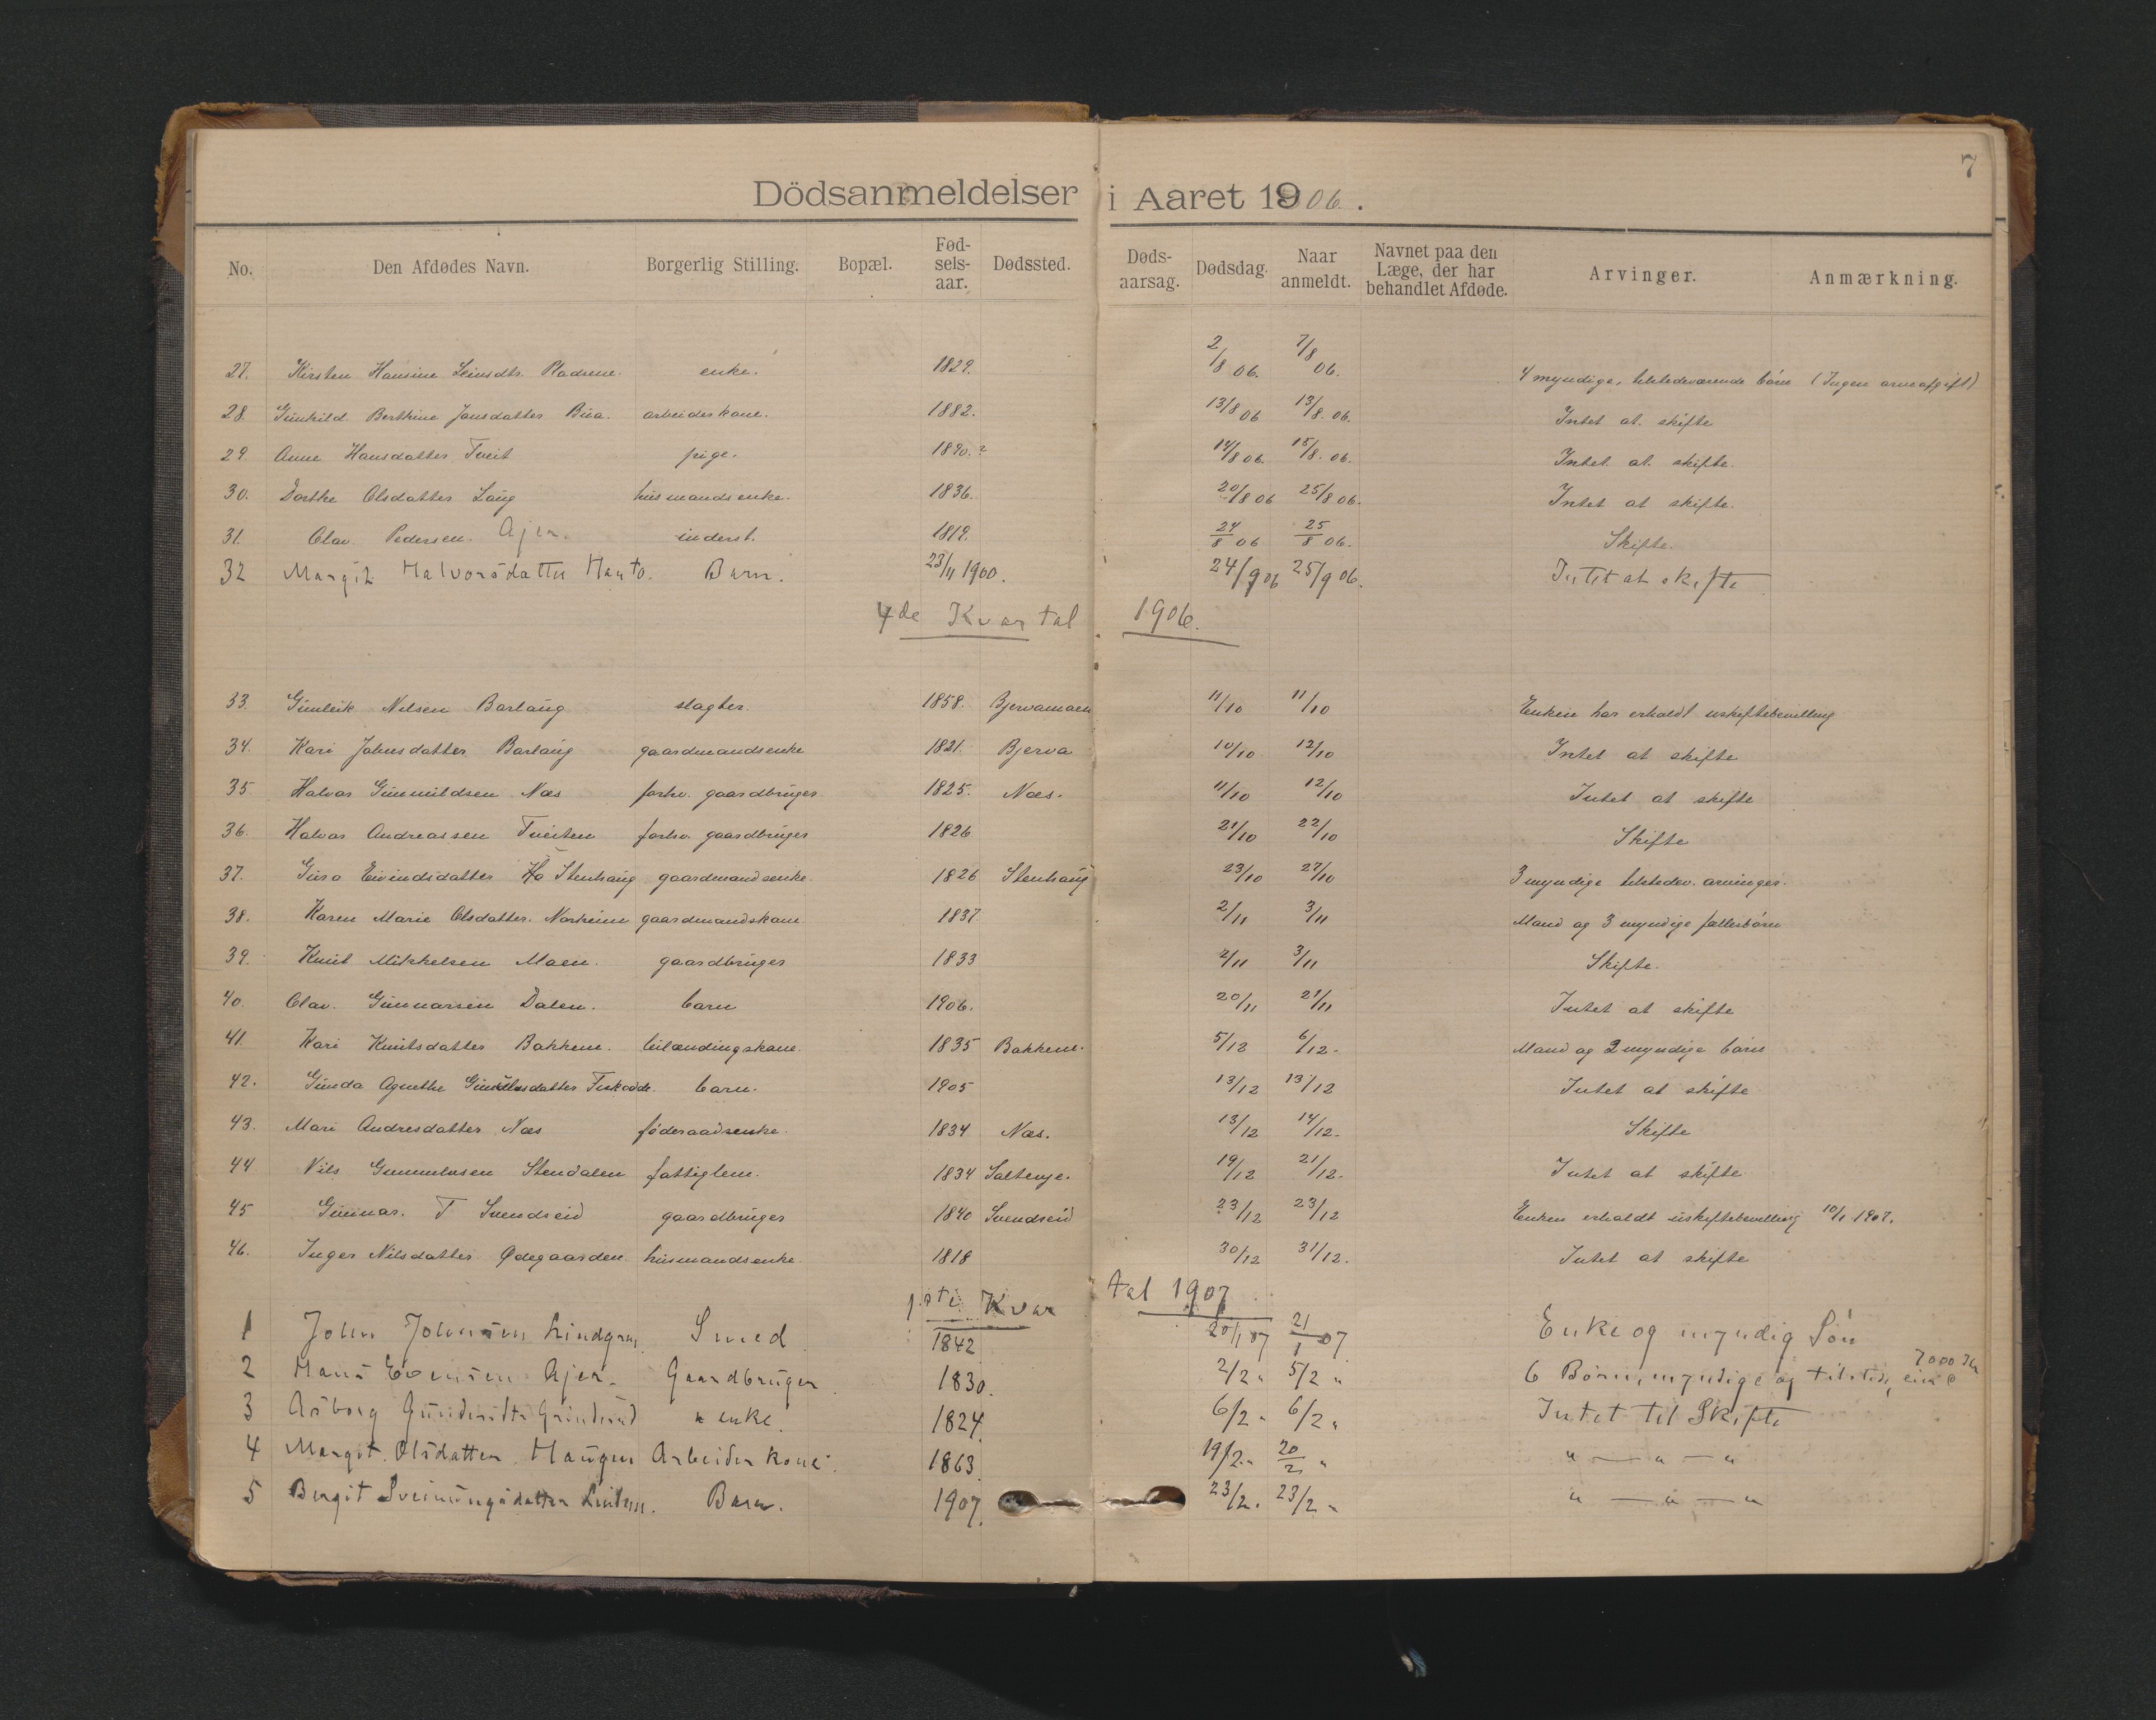 7
Dödsanmeldelser i Aaret 1906.
No. Den Afdødes Navn. Borgerlig Stilling. Bopæl. Fødselsaar. Dødssted. Dødsaarsag. Dødsdag. Naar anmeldt. Navnet paa den Læge, der har behandlet Afdøde. Arvinger. Anmærkning.
27. Kirsten Hansine Pladsene. enke. 1829. 2/8 06. 7/8 06. 4 myndige, tilstedeværende børn (Ingen arveafgift)
28. Gunhild Berthine Jansdatter Bua. arbeiderkone. 1882. 13/8 06 13/8. 06. Intet at skifte
29. Anne Hansdatter Tveit pige. 1890.? 14/8 06. 15/8. 06. Intet at skifte.
30. Dorthe Olsdatter Laug husmandsenke. 1836. 20/8 06 25/8 06. Intet at skifte.
31. Olav Pedersen Ajer. inderst. 1819. 24/8 06 25/8 06. Skifte.
32 Margit Halvorsdatter Hauto. Barn. 23/11 1900. 24/9 06 25/9 06. Intet at skifte
4de Kvartal 1906.
33. Gunleik Nilsen Barlaug slagter. 1858. Bjervamoen 11/10 11/10 Enken har erholdt uskiftebevilling
34. Kari Johnsdatter Barlaug gaardmandsenke 1821. Bjerva 10/10 12/10 Intet at skifte
35 Halvor Gunnuldsen Næs forhv. gaardbruger. 1825. Næs. 11/10 12/10 Intet at skifte
36. Halvor Andreassen Tveiten forhv. gaardbruger 1826 21/10 22/10 Skifte
37. Guro Eivindsdatter Stenhaug gaardmandsenke. 1826 Stenhaug 23/10 27/10 3 myndige tilstedev. arvinger.
38. Karen Marie Olsdatter. Norheim gaardmandskone 1837. 2/11 3/11 Mand og 3 myndige fællesbørn
39. Knut Mikkelsen Moen. gaardbruger 1833 2/11 3/11 Skifte.
40. Olav. Gunnarsen Dalen. barn 1906. 20/11 21/11 Intet at skifte
41. Kari Knutsdatter Bakkene. leilændingskone. 1835 Bakkene. 5/12 6/12. Mand og 2 myndige børn
42. Gunda Agnethe Fiskodde. barn. 1905 13/12 13/12 Intet at skifte
43. Mari Andresdatter Næs føderaadsenke. 1834 Næs. 13/12 14/12. Skifte
44. Nils Gunnulvsen Stendalen fattiglem. 1834 19/12 21/12. Intet at skifte
45 Gunnar. T Svendseid gaardbruger 1840 Svendseid 23/12 23/12 Enken erholdt uskiftebevilling 10/1 1907.
46. Inger Nilsdatter Ødegaarden husmandsenke. 1818 30/12 31/12. Intet at skifte
1ste Kvartal 1907
1 John Johnsen Lindgren Smed 1842 20/1 07 21/1 07 Enke og myndig Søn
2 Hans Evensen Ajer. Gaardbruger. 1830. 2/2 " 5/2 " 6 Børn, myndige og tilstede, 7000 Kr
3 Asborg Grinderud " enke. 1824. 6/2 " 6/2 " Intet til Skifte
4 Margit Olsdatter Haugen Arbeider kone. 1863. 19/2 " 20/2 " " — " — "
5 Bergit Sveinungsdatter Barn. 1907. 23/2 " 23/2 " " — " — "